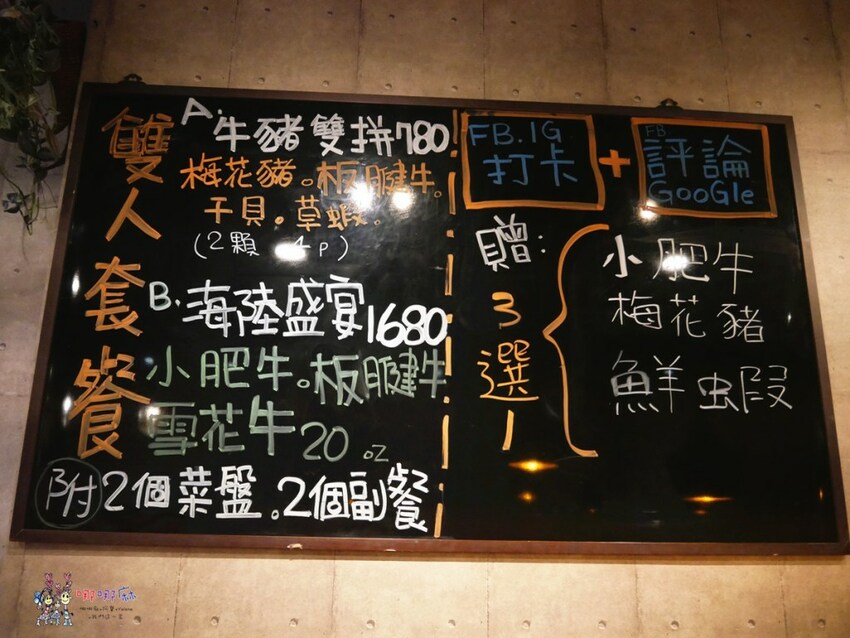 雙人套餐
A.牛豬雙拼780
梅花豬。板腱牛。
干貝。草蝦。
(2顆 4P)
B.海陸盛宴1680
小肥牛。板腱牛
雪花牛20oz
附2個菜盤。2個副餐
FB.IG
打卡
+
FB
評論
GooGle
贈:
3選1
小肥牛
梅花豬
鮮蝦